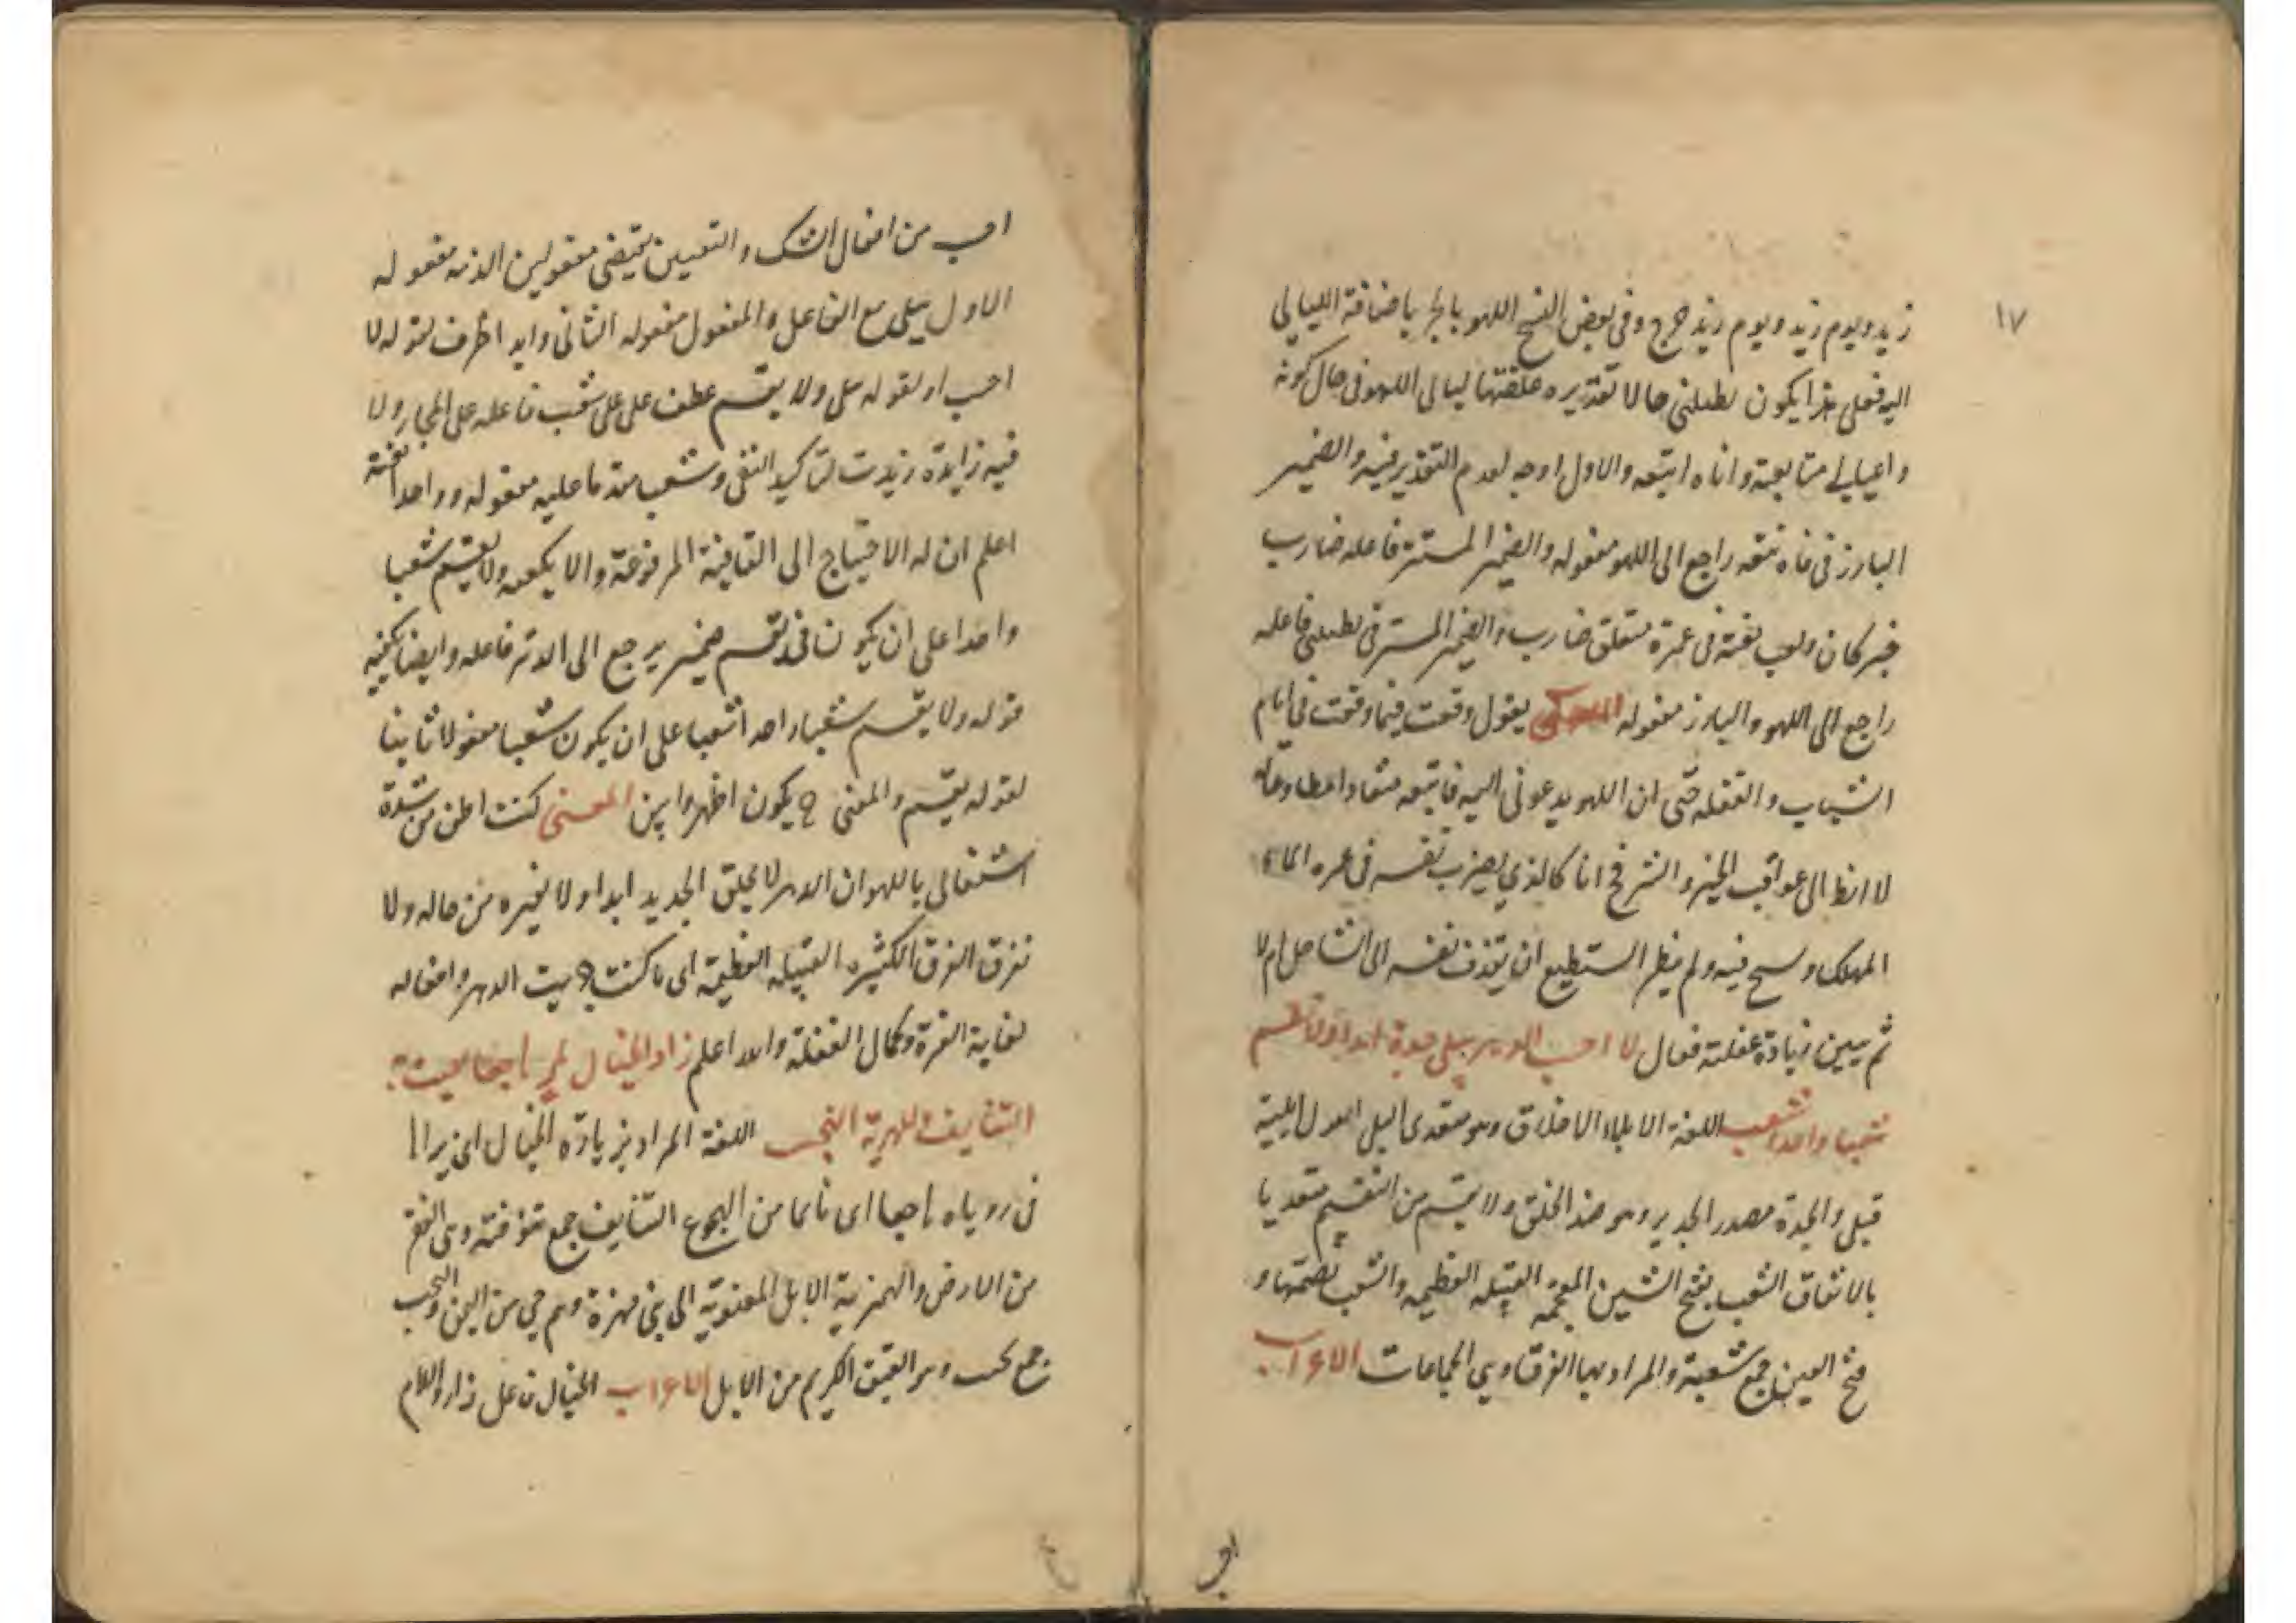 ١٧
زيد ويوم زيد ويوم زيد حرج وفى بعض النسخ اللهو بالجر باضافة الليالى
اليه فعلى هذا يكون تطبينى حالا تقديره ليالى اللهو فى حال كونه
متابعته وانا اتبعه والاول اوجه لعدم التقدير فيه والضمير
البارز فى فاتبعه راجع الى اللهو مفعوله والضمير المستتر فاعله ضارب
خبر كان ولعب فى غمرة متعلق ضارب والضمير المستتر فى فاعله
راجع الى اللهو والبارز مفعوله المعنى يقول وقعت فيما وقعت فى ايام
الشباب والغفله حتى ان اللهو يدعونى اليه فاتبعه منقادا مطاوعا له
لا انظر الى عواقب الخير والشر فح انا كالذي يضرب نفسه فى غمره الماء
المهلك وسبح فيه ولم ينظر ان يقذف نفسه الى الساحل ام لا
ثم يبين زيادة غفلته فقال لا احسب الدهر يبلى جدة ابدا ولا تقسم
شعبا واحدا شعب اللغة الابلاء الاخلاق وهو متعدى البلى
قبلى والجدة مصدر الجديد وهو ضد الخلق ولا يقسم من التقسيم متعديا
بالاتفاق الشعب بفتح الشين المعجمه القبيله العظيمه والشعب بضمتها و
فتح العين جمع شعبة والمراد بها الفرق اوهي الجماعات الاعراب
احسب من افعال الشك والتعيين يقتضى مفعولين الدهر مفعوله
الاول يبلى مع الفاعل والمفعول مفعوله الثانى وابدا ظرف لقوله لا
احسب او لقوله يبلى ولا يقسم عطف على على شعب فاعله على المجاز ولا
فيه زايدة زيدت لتاكيد النفى وشعب مقدما عليه مفعوله وواحدا نعته
اعلم ان له الاحتياج الى القافية المرفوعة والا يكفيه ولا يقسم شعبا
واحدا على ان يكون فى يقسم ضمير يرجع الى الدهر فاعله وايضا يكفيه
قوله ولا يقسم شعبا واحدا شعبا على ان يكون شعبا مفعولا ثانيا
لقوله يقسم والمعنى ح يكون اظهر وابين المعنى كنت اظن من شدة
اشتغالى باللهو ان الدهر لا يخلق الجديد ابدا ولا يغيره من حاله ولا
تفرق الفرق الكثيره القبيله العظيمة اى ما كنت الدهر وافعاله
لغاية الغرة وكمال الغفلة والله اعلم زار الخيال هاجعا لعبت به
التنايف المهرية النجب اللغة المراد بزيارة الخيال اى يراها
فى روياه هاجعا اى نائما من الهجوع التنايف جمع تنوفة وهى القفر
من الارض والمهرية الابل المنسوبة الى بنى مهرة وهم حي من اليمن والنجب
جمع نجيب وهو العتيق الكريم من الابل الاعراب الخيال فاعل زار واللام